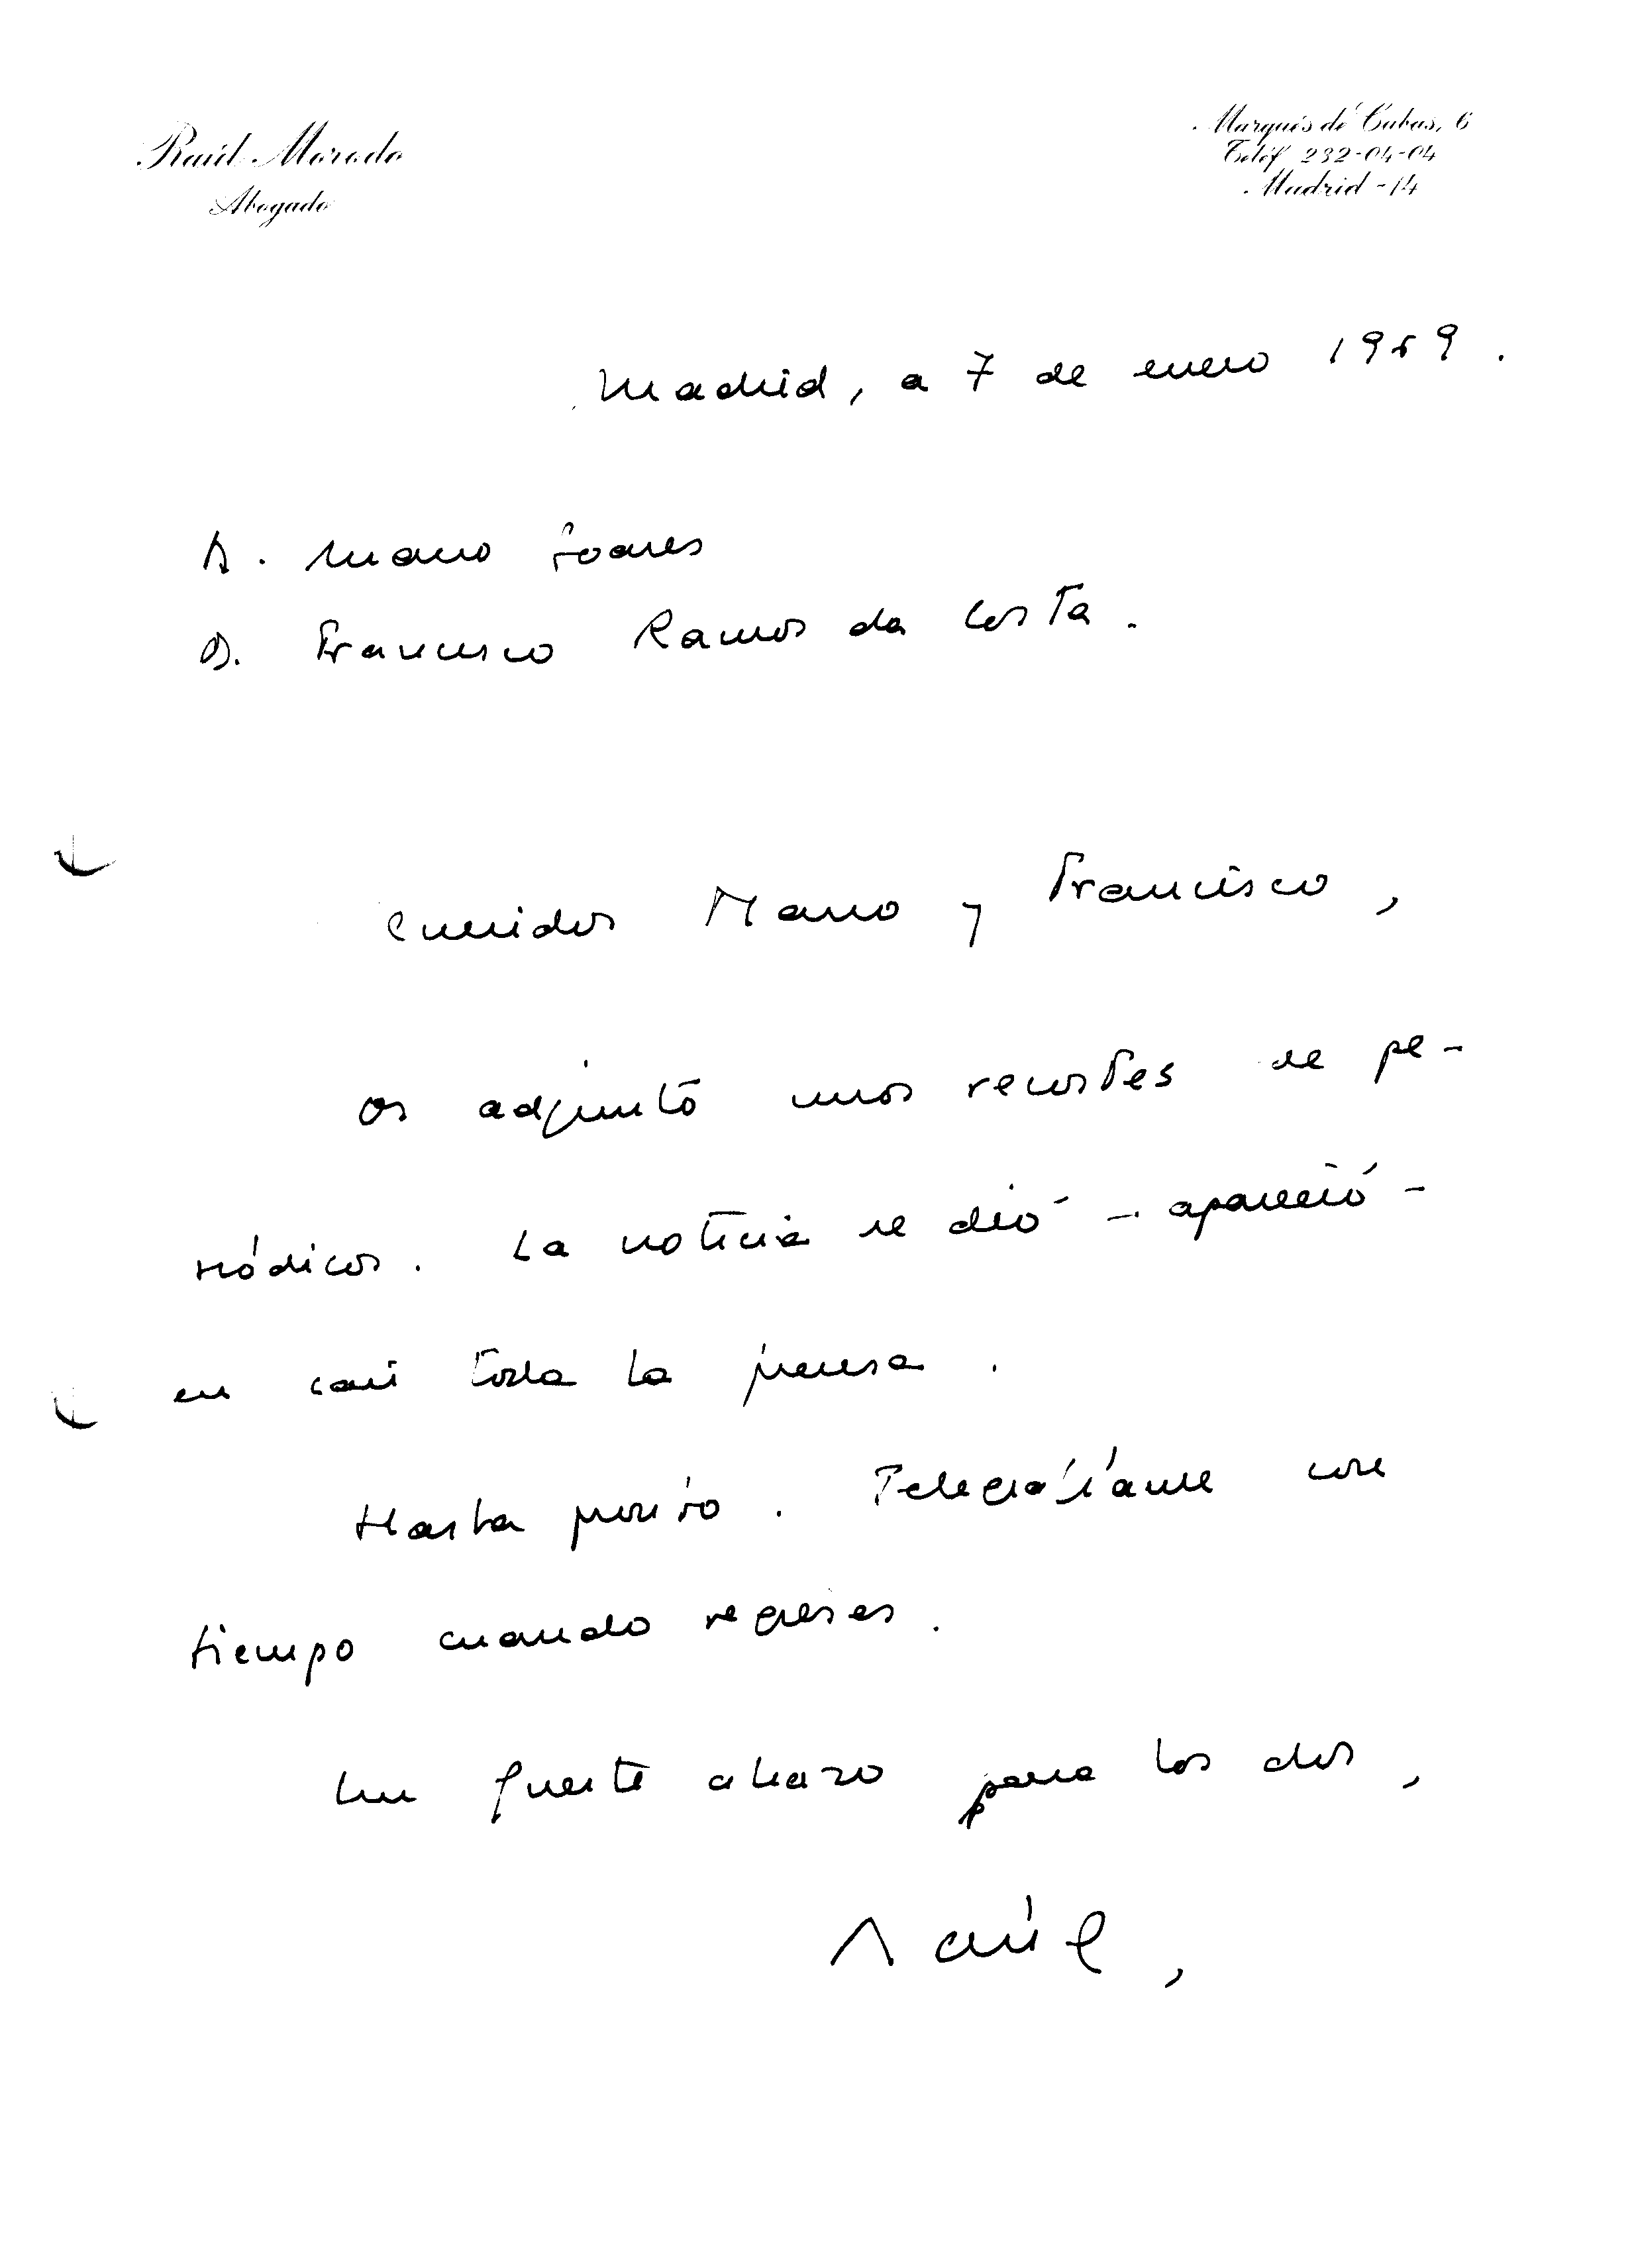 Raúl Morodo
Abogado
Marqués de Cubas, 6
Teléf 232-04-04
Madrid-14
Madrid, a 7 de enero 1969.
D. Mario Soares
D. Francisco Ramos da Costa.
Queridos Mario y Francisco,
os adjunto unos recortes de pe-
riódicos. La noticia se dió - apareció -
en casi toda la prensa.
Hasta pronto. Telegrafíame con
tiempo cuando regreses.
Un fuerte abrazo para los dos,
Raúl,